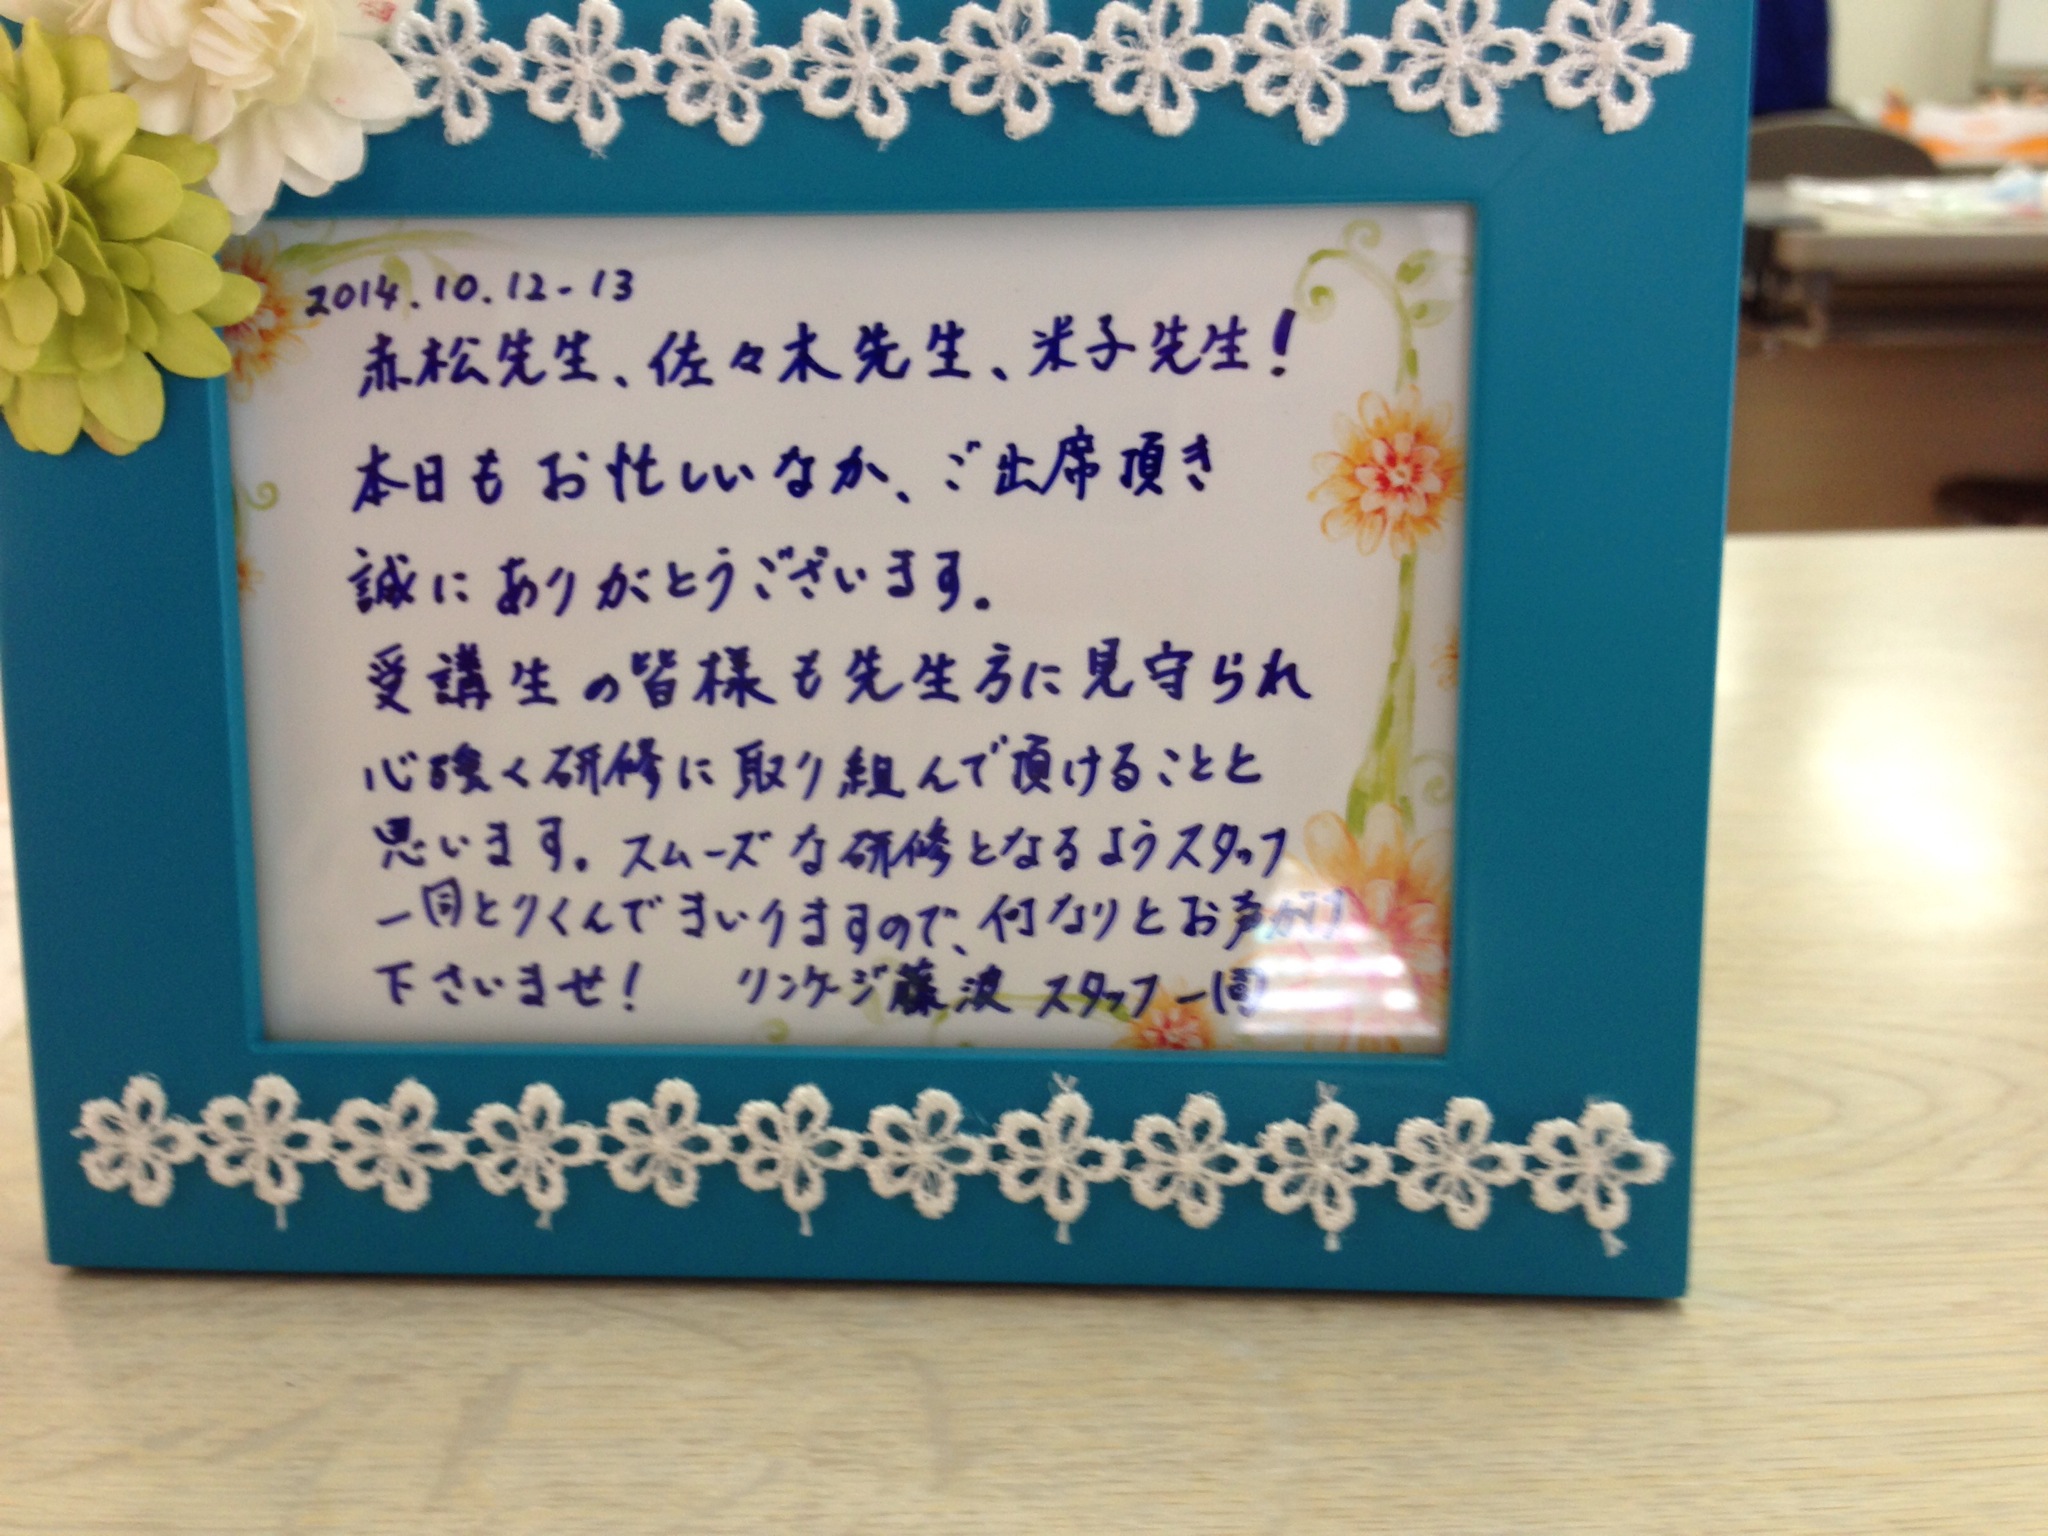 2014.10.12-13
赤松先生、佐々木先生、米子先生!
本日もお忙しいなか、ご出席頂き
誠にありがとうございます。
受講生の皆様も先生方に見守られ
心強く研修に取り組んで頂けることと
思います。スムーズな研修となるようスタッフ
一同とりくんでまいりますので、何なりとお声がけ
下さいませ! リンケージ藤波 スタッフ一同